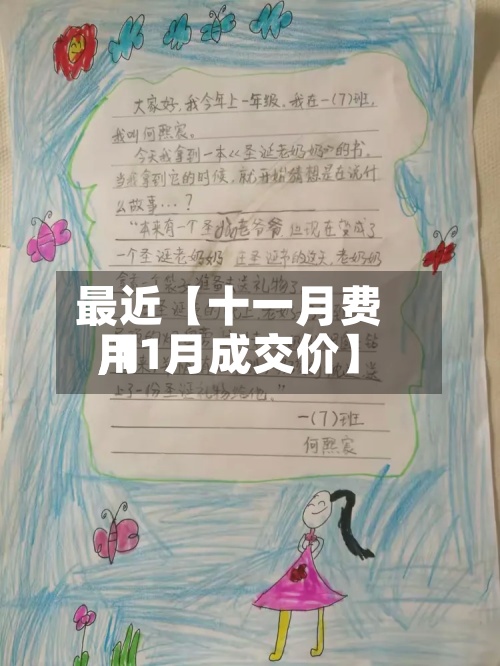 大家好,我今年上一年级,我在一(7)班,
我叫何熙宸。
今天我拿到一本《圣诞老奶奶》的书,
当我拿到它的时候,就开始猜想是在说什
么故事…?
"本来有一个圣诞老爷爷 但现在变成了
一个圣诞老奶奶 圣诞节的这天,老奶奶
准备去送礼物了
最近【十一月费
用11月成交价】
上了一份圣诞礼物给他。"
一(7)班
何熙宸